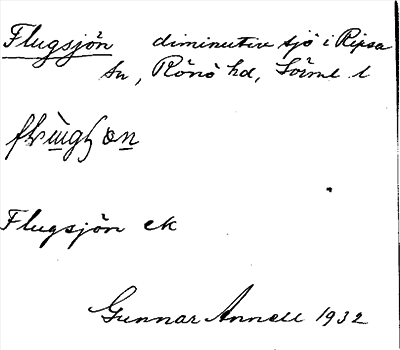 Flugsjön diminutiv sjö i Ripsa
sn, Rönö hd, Sörml. l
Flugsjön ek
Gunnar Annell 1932